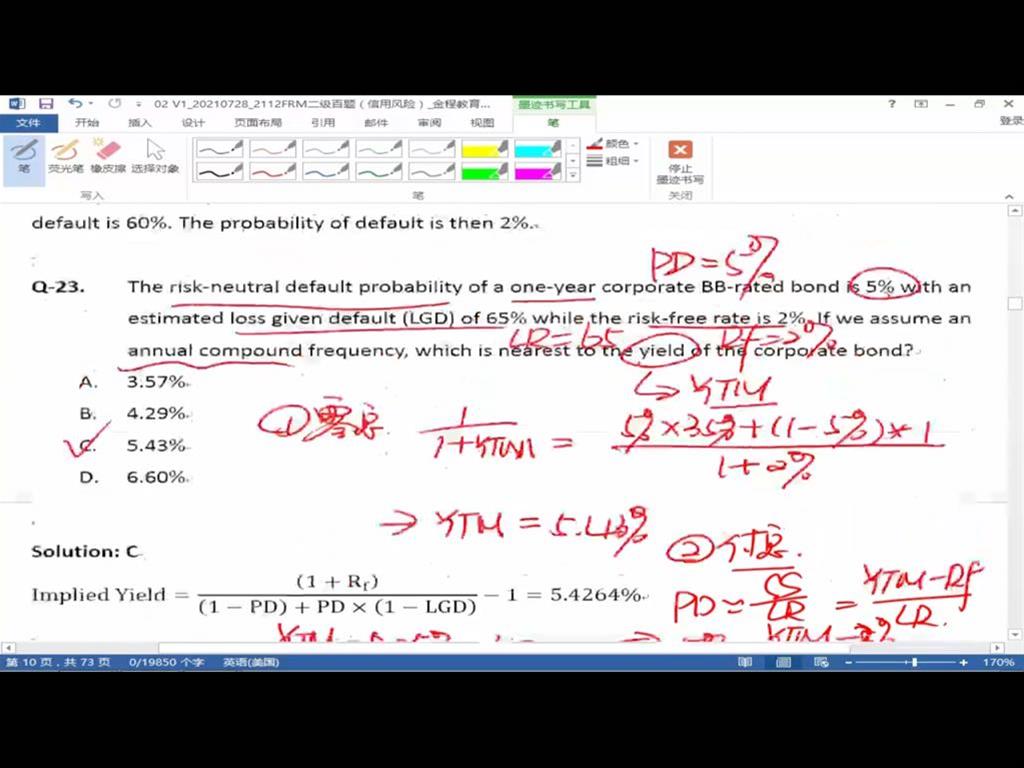 02 V1_20210728_2112FRM二级百题（信用风险）_金程教育...
墨迹书写工具
文件 开始 插入 设计 页面布局 引用 邮件 审阅 视图 笔 登录
笔 荧光笔 橡皮擦 选择对象
颜色
粗细
停止
墨迹书写
写入 笔 关闭
default is 60%. The probability of default is then 2%.
PD=5%
Q-23. The risk-neutral default probability of a one-year corporate BB-rated bond is 5% with an
estimated loss given default (LGD) of 65% while the risk-free rate is 2%. If we assume an
LR=65 Rf=2%
annual compound frequency, which is nearest to the yield of the corporate bond?
A. 3.57%
→YTM
B. 4.29%
①零息 1/(1+YTM) = (5%×35%+(1-5%)*1)/(1+2%)
C. 5.43%
D. 6.60%
→ YTM = 5.43%
②付息.
Solution: C
Implied Yield = (1 + Rf) / ((1 − PD) + PD × (1 − LGD)) − 1 = 5.4264%
PD = CS/LR = (YTM-Rf)/LR.
第 10 页，共 73 页 0/19850 个字 英语(美国) 170%